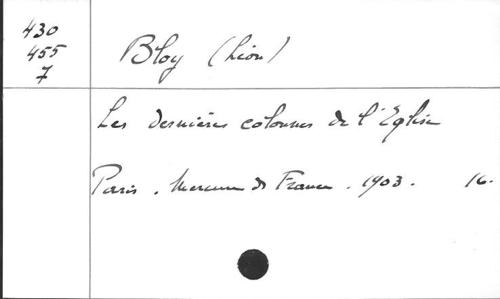 430
455
7
Bloy (Léon)
Les dernières colonnes de l'Eglise
Paris. Mercure de France. 1903. 16.